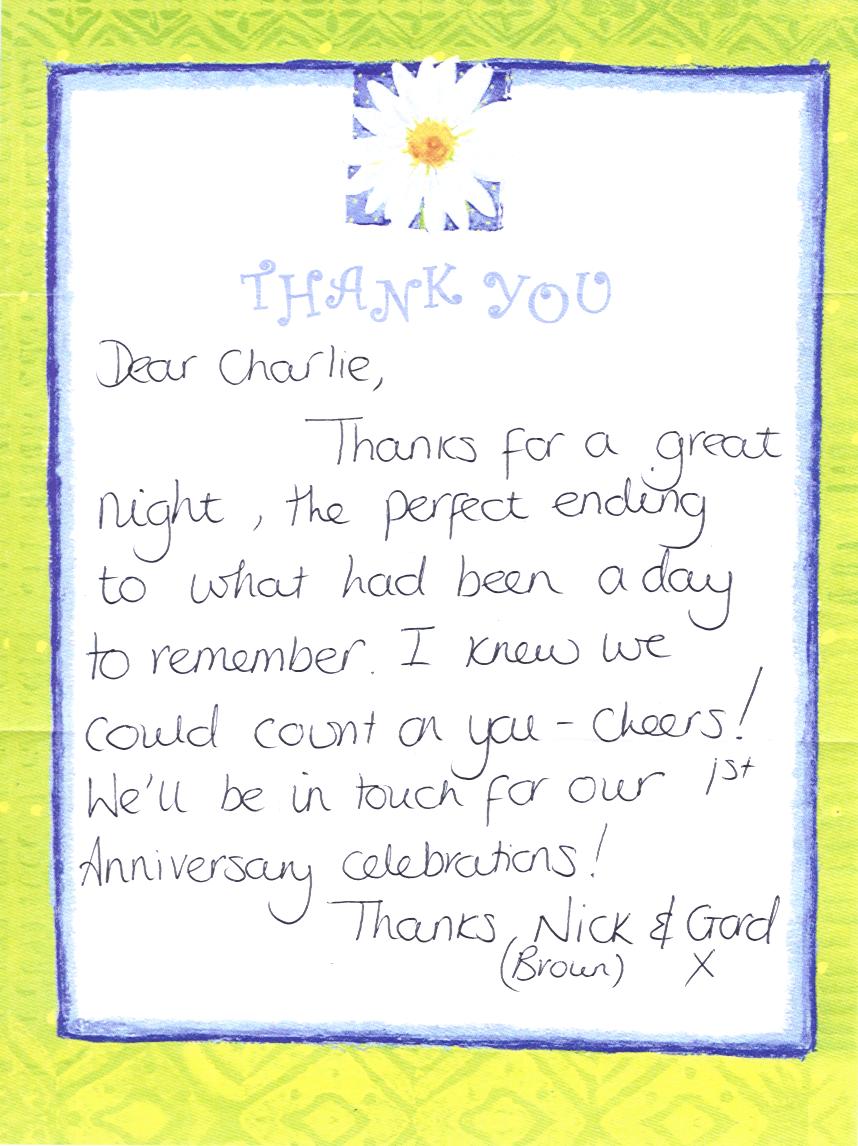 THANK YOU
Dear Charlie,
Thanks for a great
night, the perfect ending
to what had been a day
to remember. I knew we
could count on you - cheers!
We'll be in touch for our 1st
Anniversary celebrations!
Thanks, Nick & Gord
(Brown) X